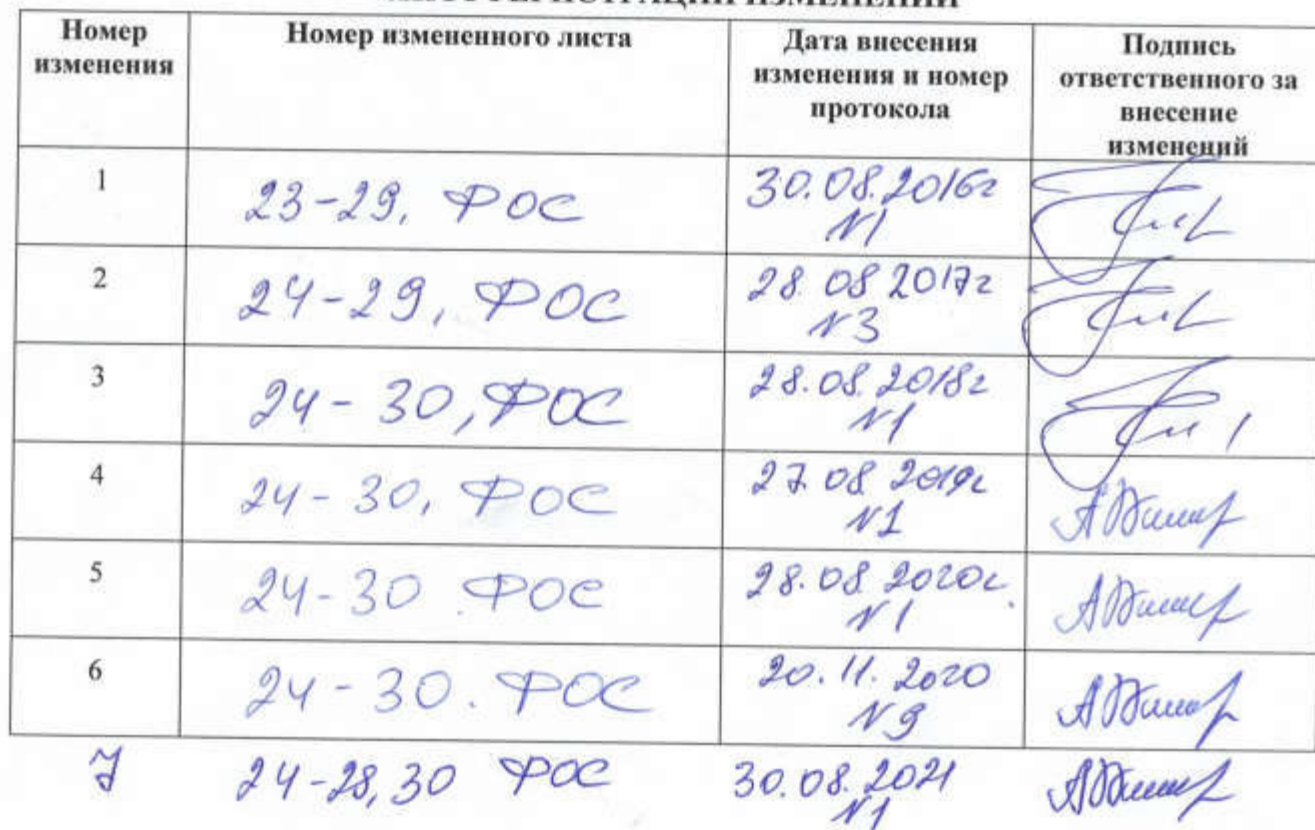 Номер изменения
Номер измененного листа
Дата внесения изменения и номер протокола
Подпись ответственного за внесение изменений
1
23-29, ФОС
30.08.2016г
N1
2
24-29, ФОС
28.08 2017г
N3
3
24-30, ФОС
28.08.2018г
N1
4
24-30, ФОС
27.08 2019г
N1
5
24-30 ФОС
28.08 2020г.
N1
6
24-30. ФОС
20.11.2020
N9
7
24-28,30 ФОС
30.08.2021
N1